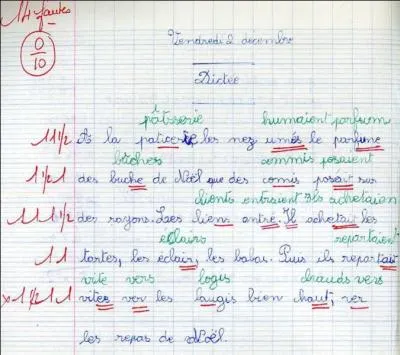 14 fautes
0
10
Vendredi 2 decembre
Dictée
pâtisserie humaient parfum
1 1 1/2 A la paticerie les nez umés le parfume
bûches commis posaient
1 1/2 1 des buche de Noël que des comis posait sur
clients entraient Ils achetaient
1 1 1 1/2 des rayons. Les liens entré. Il achetait les
éclairs repartaient
1 1 tartes, les éclair, les babas. Puis ils repartait
vite vers logis chauds vers
x 1 1/2 1 1 vites ver les laugis bien chaut, ver
les repas de Noël.